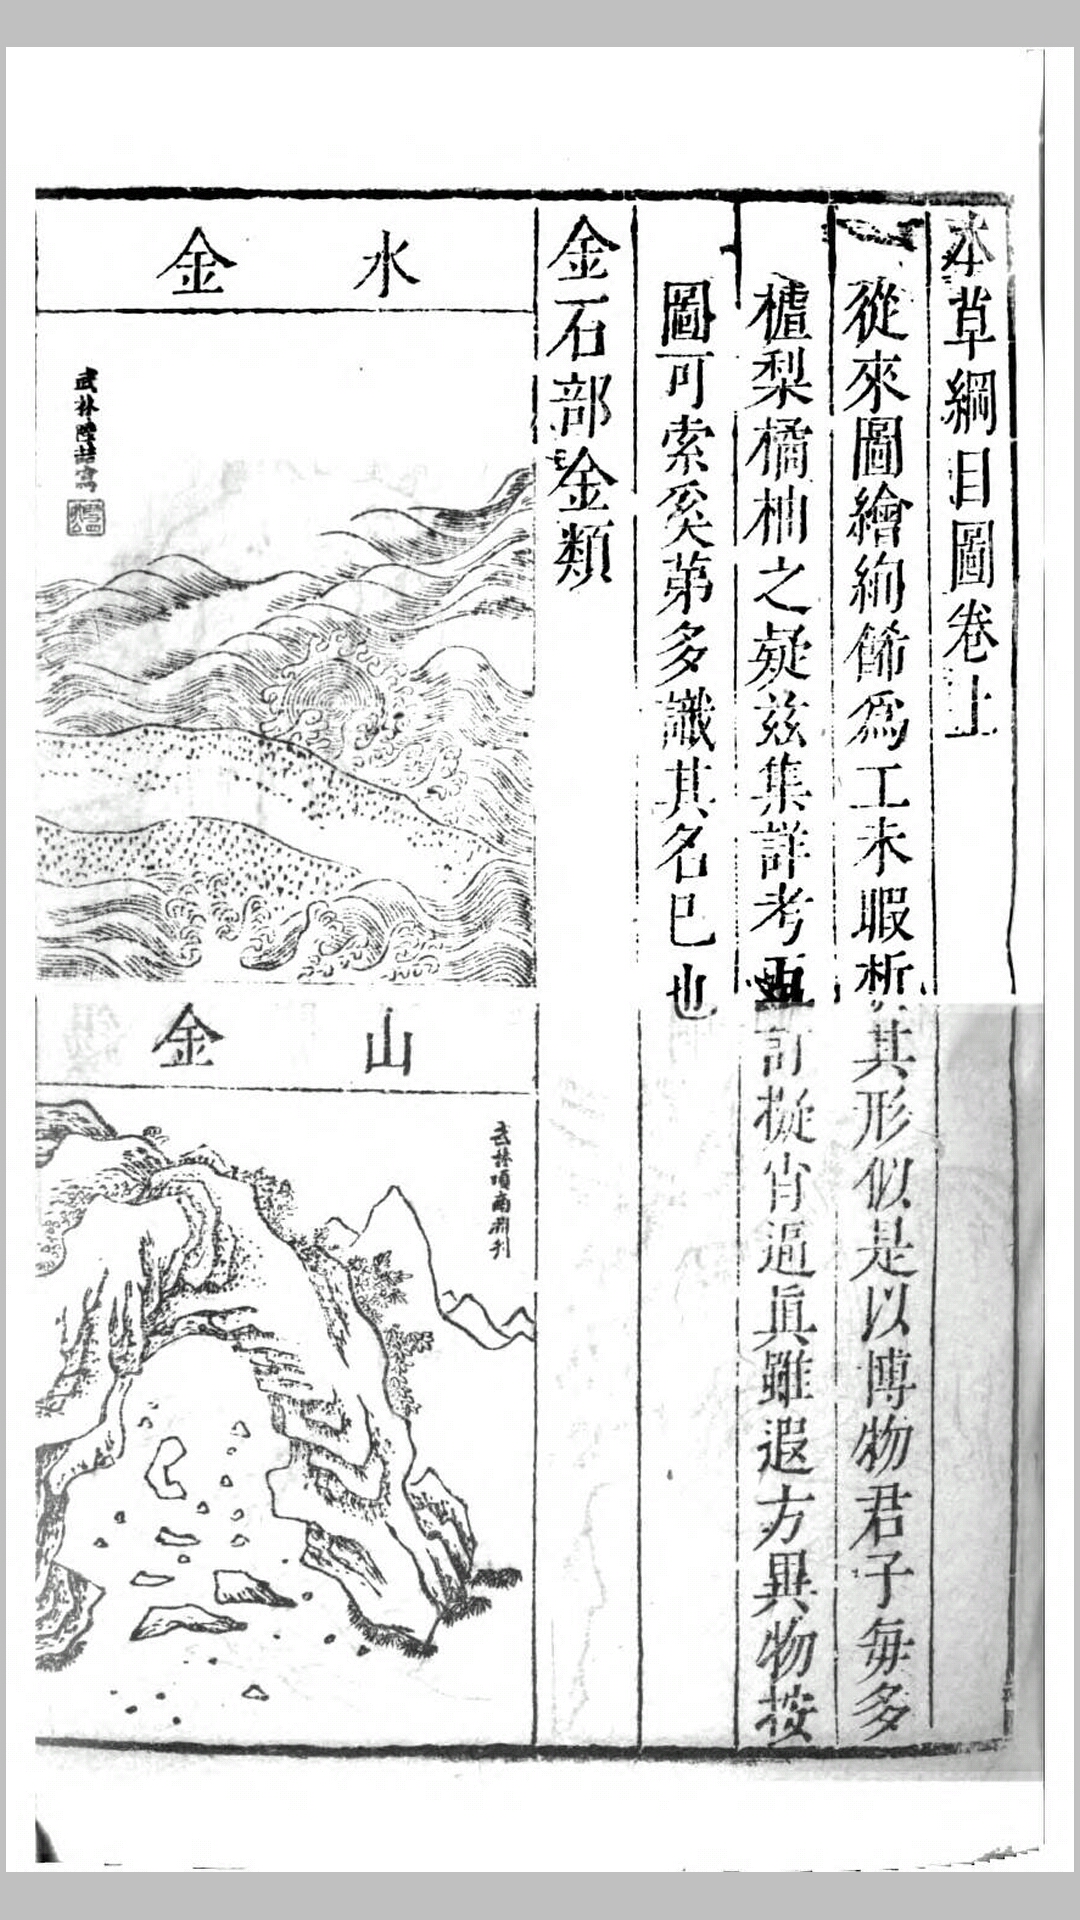 本草綱目圖卷上
從來圖繪絢餙為工未暇析其形似是以博物君子每多
樝梨橘柚之疑兹集詳考 訂擬肖逼眞雖遐方異物按
圖可索矣苐多識其名已也
金石部金類
水金
武林陸喆寫
山金
武林項南洲刋